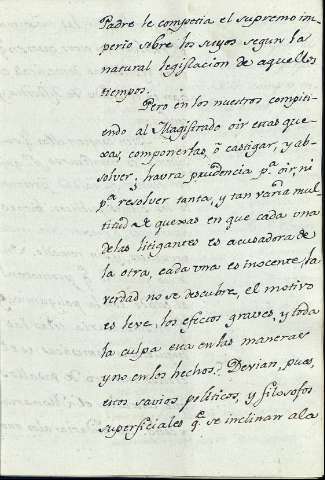 Padre le competia el supremo im-
perio sobre los suyos segun la
natural legislacion de aquellos
tiempos.
Pero en los nuestros competi-
endo al Magistrado oir estas que-
xas, componerlas, ò castigar, y ab-
solver; havra prudencia pa. oir, ni
pa. resolver tanta, y tan varia mul-
titud de quexas en que cada una
de las litigantes es acusadora de
la otra, cada una es inocente, la
verdad no se descubre, el motivo
es leve, los efectos graves, y toda
la culpa esta en las maneras
y no en los hechos? Devian, pues,
estos savios politicos, y filosofos
superficiales qe. se inclinan a la